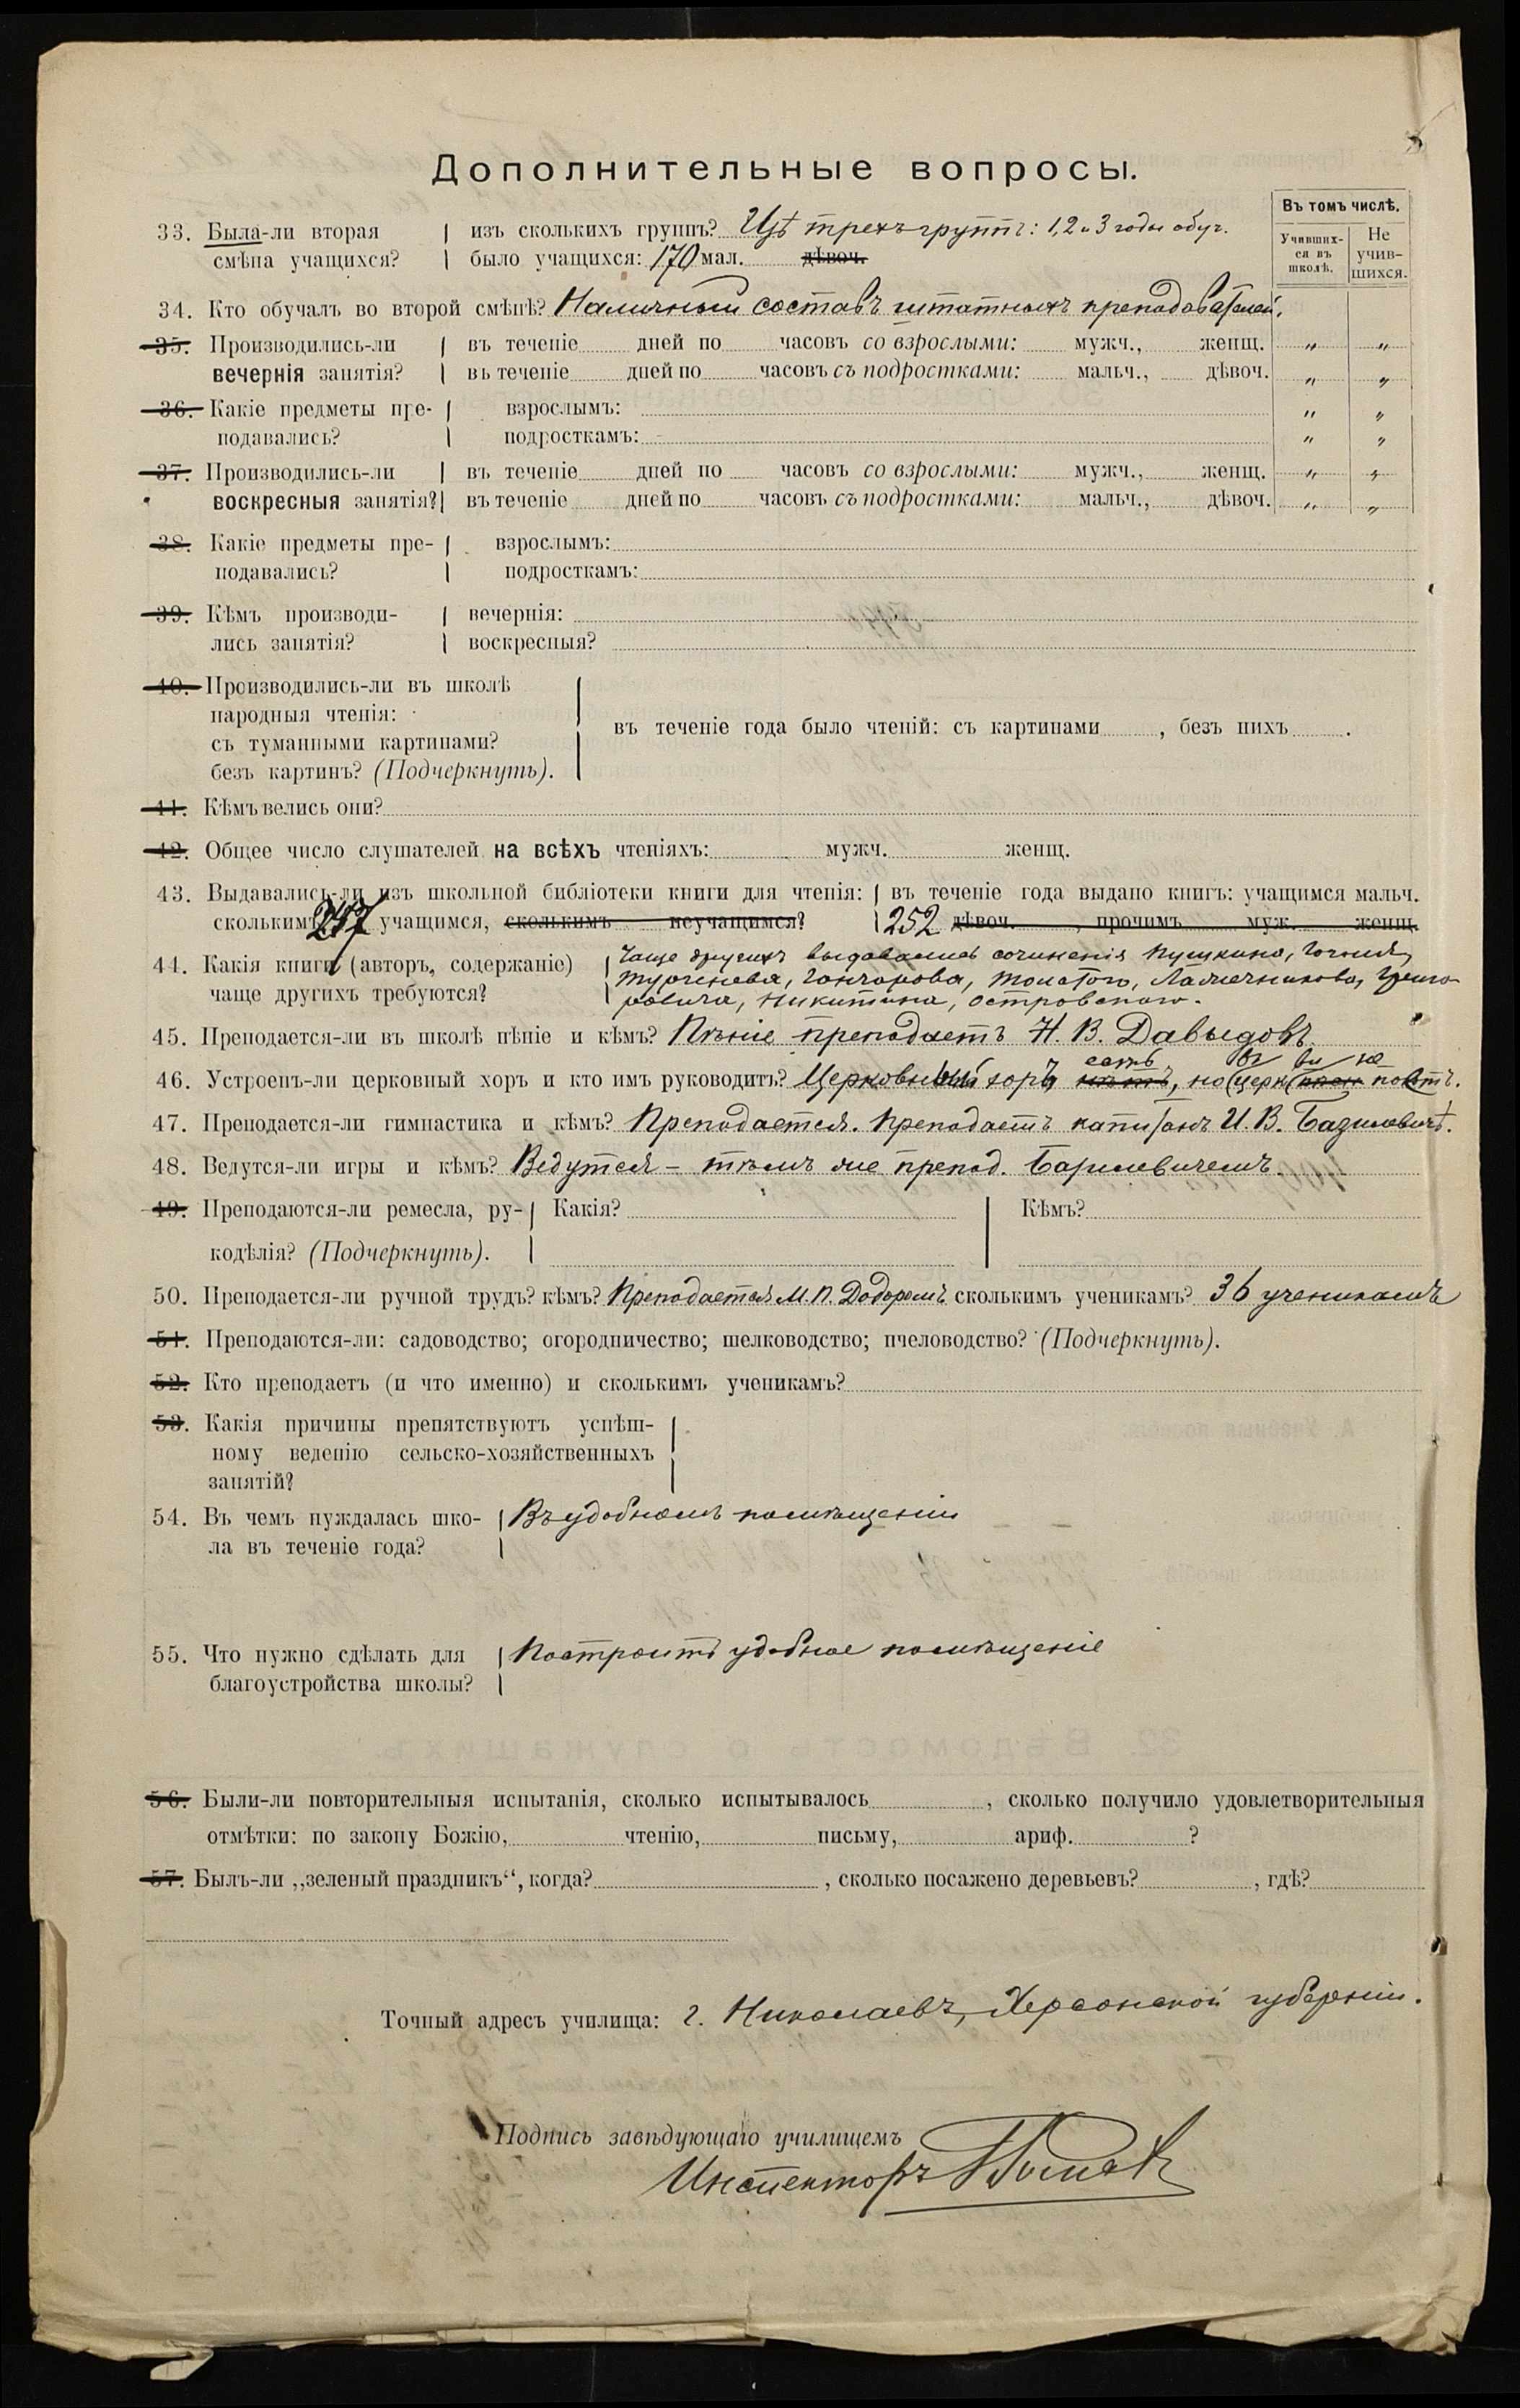 Дополнительные вопросы.
Въ томъ числѣ.
Учившихся въ школѣ.
Не учившихся.
33. Была-ли вторая смѣна учащихся?
изъ сколькихъ группъ? Изъ трехъ группъ: 1, 2 и 3 годы обуч.
было учащихся: 170 мал. дѣвоч.
34. Кто обучалъ во второй смѣнѣ? Наличный составъ штатныхъ преподавателей.
35. Производились-ли въ теченіе дней по часовъ со взрослыми: мужч., женщ. „ „
вечернія занятія? въ теченіе дней по часовъ съ подростками: мальч., дѣвоч. „ „
36. Какіе предметы пре- взрослымъ: „ „
подавались? подросткамъ: „ „
37. Производились-ли въ теченіе дней по часовъ со взрослыми: мужч., женщ. „ „
воскресныя занятія? въ теченіе дней по часовъ съ подростками: мальч., дѣвоч. „ „
38. Какіе предметы пре- взрослымъ:
подавались? подросткамъ:
39. Кѣмъ производи- вечернія:
лись занятія? воскресныя?
40. Производились-ли въ школѣ
народныя чтенія:
съ туманными картинами?
безъ картинъ? (Подчеркнуть).
въ теченіе года было чтеній: съ картинами , безъ нихъ .
41. Кѣмъ велись они?
42. Общее число слушателей на всѣхъ чтеніяхъ: мужч. женщ.
43. Выдавались-ли изъ школьной библіотеки книги для чтенія: въ теченіе года выдано книгъ: учащимся мальч.
сколькимъ учащимся, сколькимъ неучащимся? 252 дѣвоч. , прочимъ муж. женщ.
44. Какія книги (авторъ, содержаніе)
чаще другихъ требуются?
Чаще другихъ выдавались сочиненія Пушкина, Гоголя,
Тургенева, Гончарова, Толстого, Лажечникова, Григо-
ровича, Никитина, Островскаго.
45. Преподается-ли въ школѣ пѣніе и кѣмъ? Пѣніе преподаетъ Н. В. Давыдовъ
46. Устроенъ-ли церковный хоръ и кто имъ руководитъ? Церковный хоръ есть нѣтъ, но въ церкви не поетъ.
47. Преподается-ли гимнастика и кѣмъ? Преподается. Преподаетъ капитанъ И. В. Базилевичъ.
48. Ведутся-ли игры и кѣмъ? Ведутся – тѣмъ же препод. Базилевичемъ.
49. Преподаются-ли ремесла, ру- Какія? Кѣмъ?
кодѣлія? (Подчеркнуть).
50. Преподается-ли ручной трудъ? кѣмъ? Преподается М. П. сколькимъ ученикамъ? 36 ученикамъ
51. Преподаются-ли: садоводство; огородничество; шелководство; пчеловодство? (Подчеркнуть).
52. Кто преподаетъ (и что именно) и сколькимъ ученикамъ?
53. Какія причины препятствуютъ успѣш-
ному веденію сельско-хозяйственныхъ
занятій?
54. Въ чемъ нуждалась шко- Въ удобномъ помѣщеніи
ла въ теченіе года?
55. Что нужно сдѣлать для Построить удобное помѣщеніе
благоустройства школы?
56. Были-ли повторительныя испытанія, сколько испытывалось , сколько получило удовлетворительныя
отмѣтки: по закону Божію, чтенію, письму, ариф. ?
57. Былъ-ли „зеленый праздникъ“, когда? , сколько посажено деревьевъ? , гдѣ?
Точный адресъ училища: г. Николаевъ, Херсонской губерніи.
Подпись завѣдующаго училищемъ
Инспекторъ